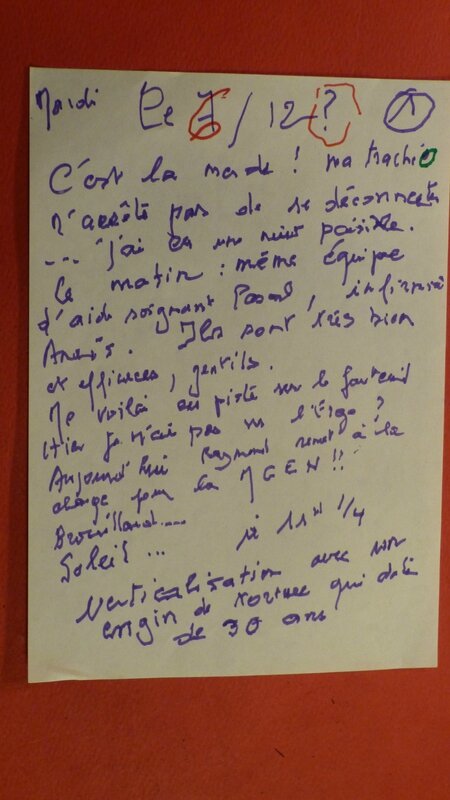 Mardi Le 7/12 ? 1
C'est la merde ! ma trachéo
n'arrête pas de se déconnecter
... j'ai eu une nuit paisible.
Ce matin : même équipe
d'aide soignant Pascal, infirmière
Anaïs. Ils sont très bien
et efficaces, gentils.
Me voilà en piste sur le fauteuil
Hier je n'ai pas vu l'Ergo ?
Aujourd'hui Raymond remet à la
charge pour la MGEN !!
Brouillard....
Soleil ... à 11H 1/4
Verticalisation avec mon
engin de torture qui date
de 30 ans